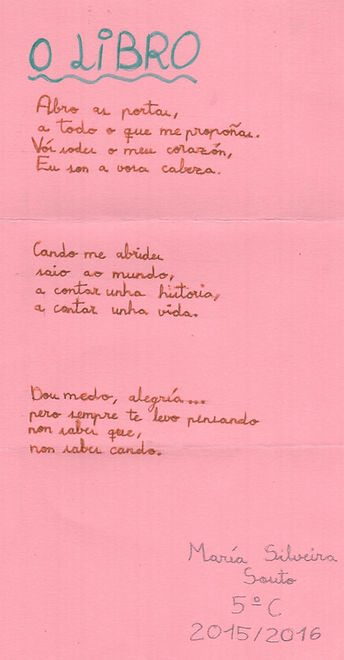 O LiBRO
Abro as portas,
a todo o que me propoñas.
Vós sodes o meu corazón,
Eu son a vosa cabeza.
Cando me abrides
saio ao mundo,
a contar unha historia,
a contar unha vida.
Dou medo, alegría...
pero sempre te levo pensando
non sabes que,
non sabes cando.
María Silveira
Souto
5º C
2015/2016